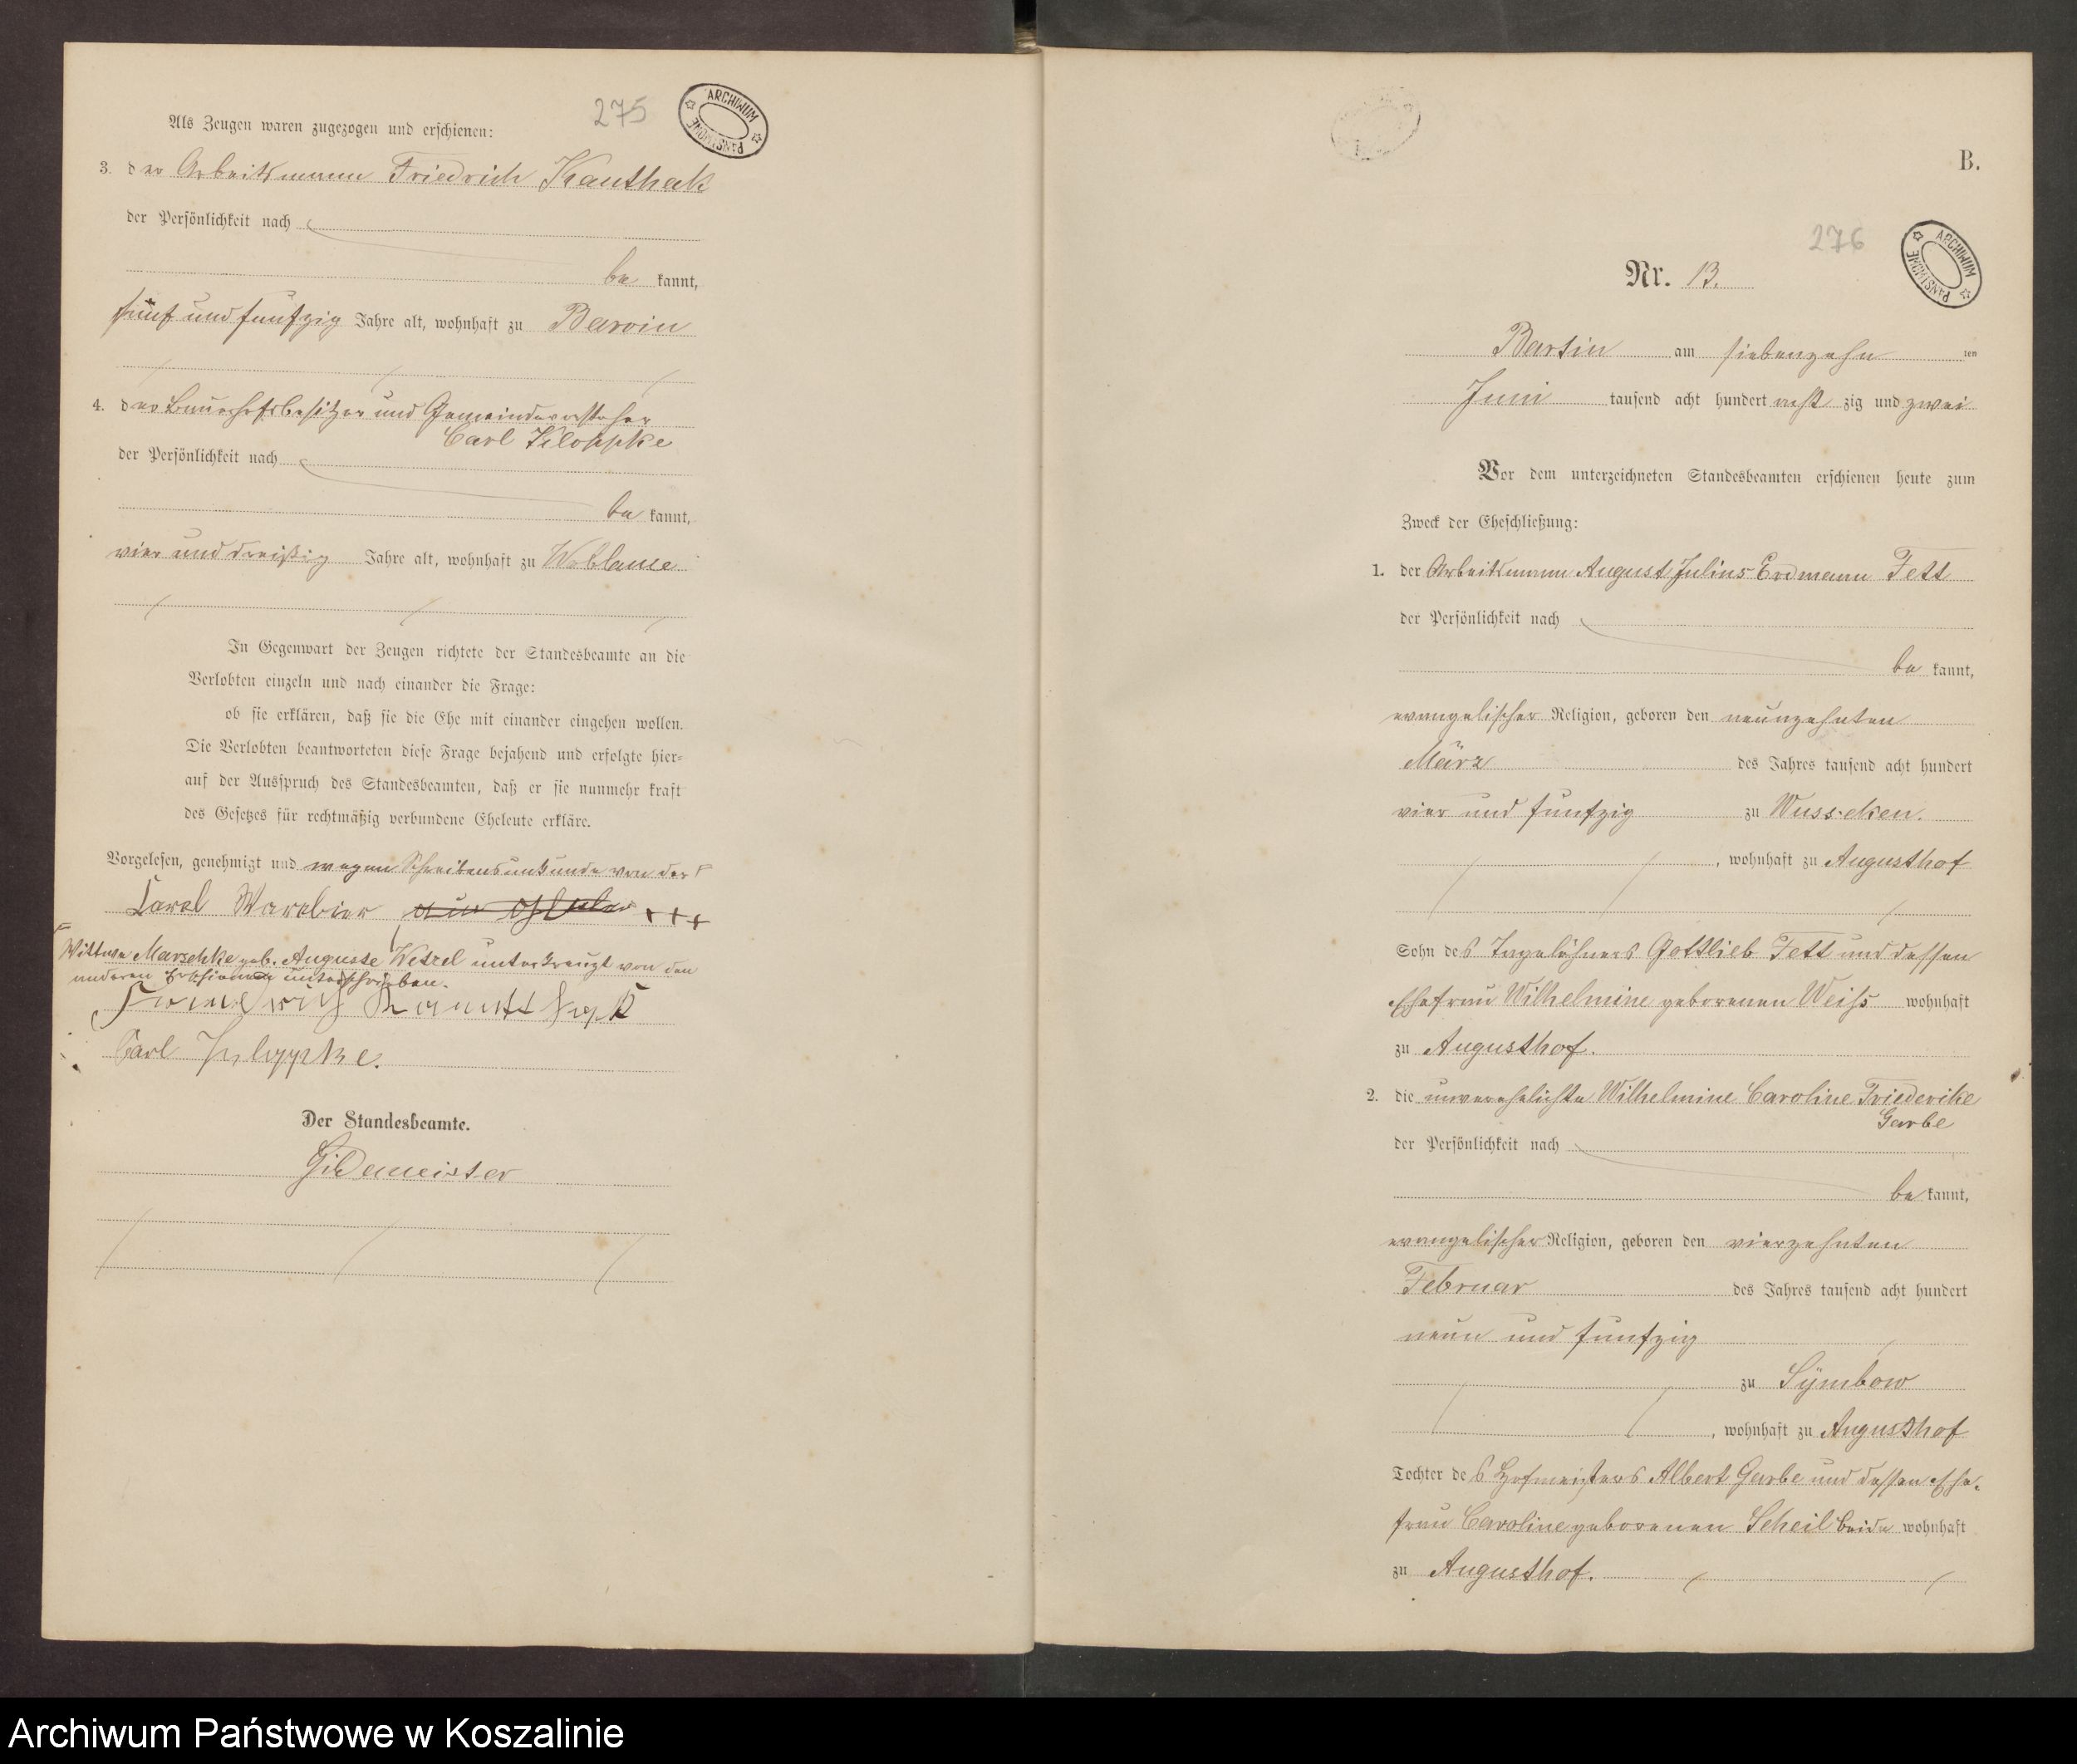 275
ARCHIWUM PAŃSTWOWE
Als Zeugen waren zugezogen und erschienen:
3. der Arbeitsmann Friedrich Kauthak
der Persönlichkeit nach
be kannt,
fünf und fünfzig Jahre alt, wohnhaft zu Barvin
4. der Bauerhofsbesitzer und Gemeindevorsteher
Carl Kloppke
der Persönlichkeit nach
be kannt,
vier und dreißig Jahre alt, wohnhaft zu Woblanse
In Gegenwart der Zeugen richtete der Standesbeamte an die
Verlobten einzeln und nach einander die Frage:
ob sie erklären, daß sie die Ehe mit einander eingehen wollen.
Die Verlobten beantworteten diese Frage bejahend und erfolgte hier=
auf der Ausspruch des Standesbeamten, daß er sie nunmehr kraft
des Gesetzes für rechtmäßig verbundene Eheleute erkläre.
Vorgelesen, genehmigt und wegen Schreibensunkunde von der
+++
Wittwe Marschke geb. Auguste Wetzel unterkreuzt von den
anderen Erschienenen unterschrieben.
Carl
Der Standesbeamte.
Gildemeister
B.
276
ARCHIWUM PAŃSTWOWE
Nr. 13.
Bartin am siebenzehn ten
Juni tausend acht hundert acht zig und zwei
Vor dem unterzeichneten Standesbeamten erschienen heute zum
Zweck der Eheschließung:
1. der Arbeitsmann August Julius Erdmann Fett
der Persönlichkeit nach
be kannt,
evangelischer Religion, geboren den neunzehnten
März des Jahres tausend acht hundert
vier und fünfzig zu Wussecken.
, wohnhaft zu Augusthof
Sohn des Tagelöhners Gottlieb Fett und dessen
Ehefrau Wilhelmine geborenen Weiß wohnhaft
zu Augusthof.
2. die unverehelichte Wilhelmine Caroline Friederike
Garbe
der Persönlichkeit nach
be kannt,
evangelischer Religion, geboren den vierzehnten
Februar des Jahres tausend acht hundert
neun und fünfzig
zu Symbow
, wohnhaft zu Augusthof
Tochter des Hofmeisters Albert Garbe und dessen Ehe-
frau Caroline geborenen Scheil beide wohnhaft
zu Augusthof.
Archiwum Państwowe w Koszalinie